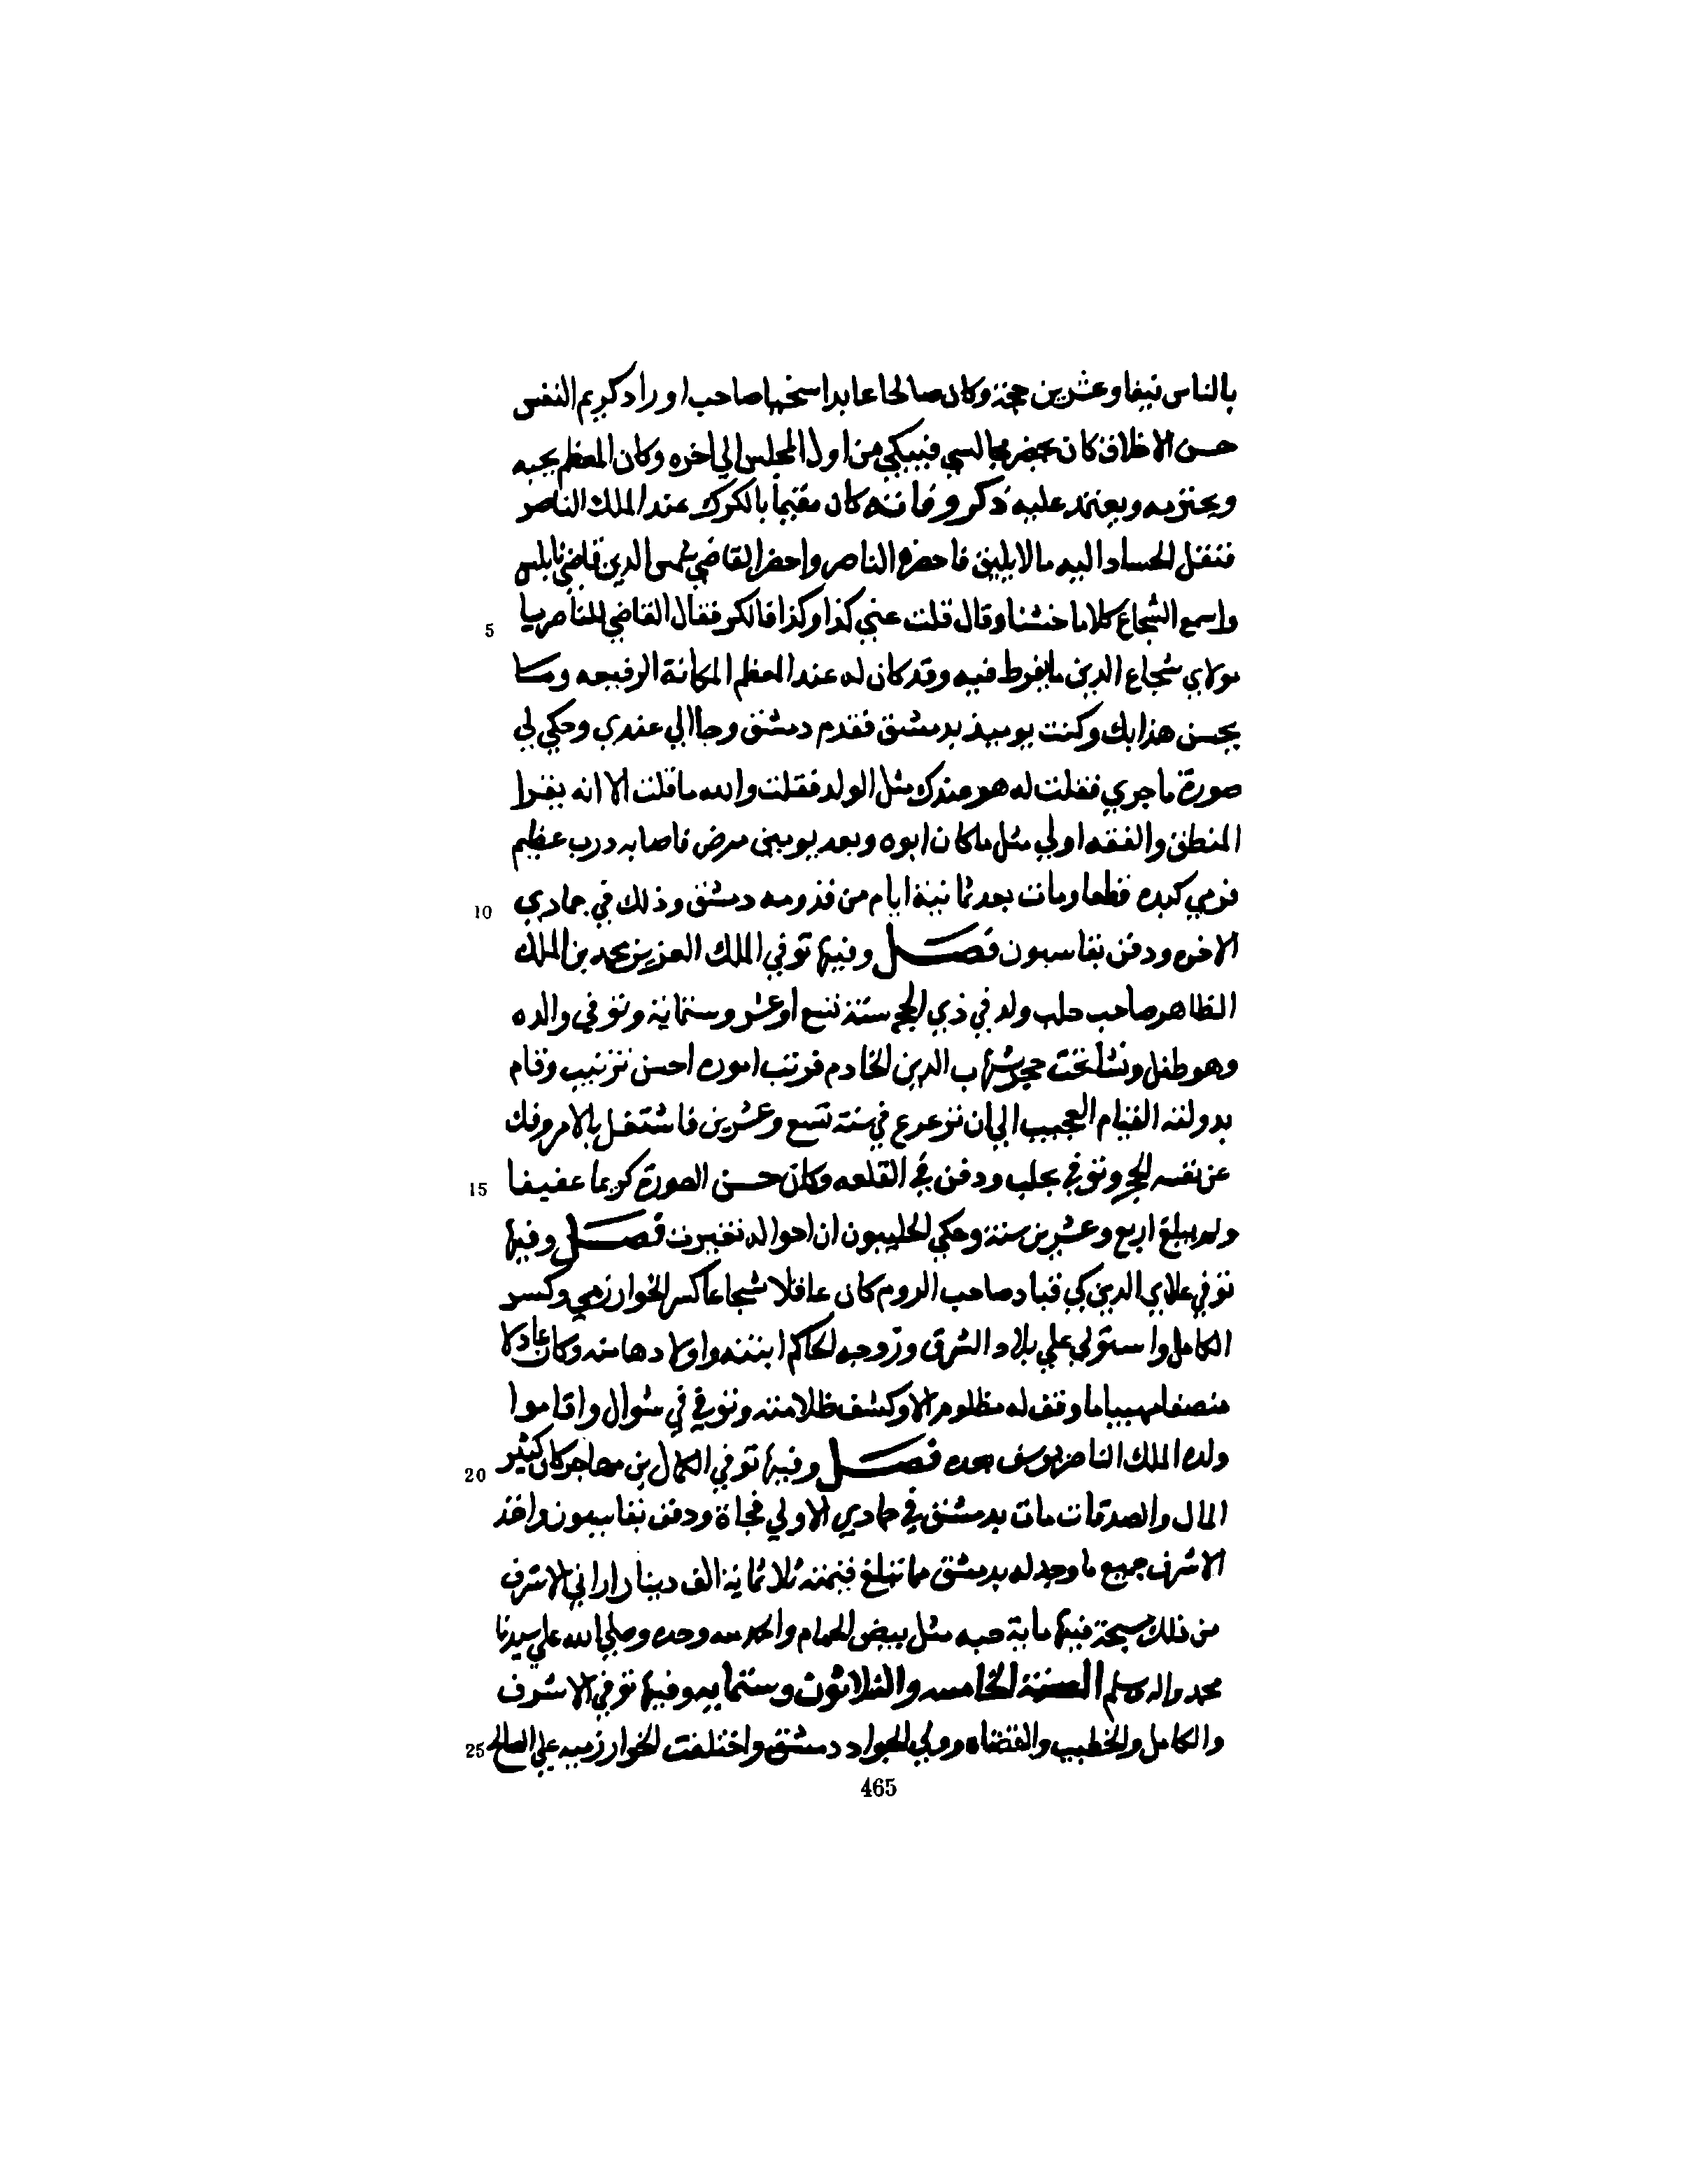 بالناس نيفا وعشرين حجة وكان صالحا عابدا سخيا صاحب اوراد كريم النفس
حسن الاخلاق كان يحضر مجالسي فيبكي من اول المجلس الي اخره وكان المعظم يحبه
ويحترمه ويعتمد عليه ذكر وفاته كان مقيما بالكرك عند الملك الناصر
فنقل الحساد اليه ما لا يليق فاحضره الناصر واحضر القاضي شمس الدين قاضي نابلس
واسمع الشجاع كلاما خشنا وقال قلت عني كذا وكذا فانكر فقال القاضي للناصر يا
5
مولاي شجاع الدين ما يفرط فيه وقد كان له عند المعظم المكانة الرفيعه وما
يحسن هذا بك وكنت يوميذ بدمشق فقدم دمشق وجا الي عندي وحكي لي
صورة ما جري فقلت له هو عندك مثل الولد فقلت والله ما قلت الا انه يقرا
المنطق والفقه اولي مثل ما كان ابوه وبعد يومين مرض فاصابه درب عظيم
فرمي كبده قطعا ومات بعد ثمانية ايام من قدومه دمشق وذلك في جمادي
10
الاخره ودفن بقاسيون فصل وفيها توفي الملك العزيز محمد بن الملك
الظاهر صاحب حلب ولد في ذي الحج سنة تسع او عشر وستماية وتوفي والده
وهو طفل ونشأ تحت حجر شهاب الدين الخادم فرتب اموره احسن ترتيب وقام
بدولته القيام العجيب الي ان ترعرع في سنة تسع وعشرين فاشتغل بالامر وفك
عن نفسه الحجر وتوفي بحلب ودفن في القلعه وكان حسن الصورة كريما عفيفا
15
ولم يبلغ اربع وعشرين سنة وحكي الحلبيون ان احواله تغيرت فصل وفيها
توفي علاي الدين كي قباد صاحب الروم كان عاقلا شجاعا كسر الخوارزمي وكسر
الكامل واستولي علي بلاد الشرق وزوجه الحاكم ابنته واولادها منه وكان عادلا
منصفا مهيبا ما وقف له مظلوم الا وكشف ظلامته وتوفي في شوال واقاموا
ولده الملك الناصر يوسف بعده فصل وفيها توفي الكمال بن مهاجر كان كثير
20
المال والصدقات مات بدمشق في جمادي الاولي فجاة ودفن بقاسيون واخذ
الاشرف جميع ما وجد له بدمشق مما تبلغ قيمته ثلاثماية الف دينار اراني الاشرف
من ذلك سبحة فيها ماية حبه مثل بيض الحمام والحمد لله وحده وصلي الله علي سيدنا
محمد واله وسلم السنة الخامسه والثلاثون وستمايه وفيها توفي الاشرف
والكامل والخطيب والقضاه وولي الجواد دمشق واختلفت الخوارزميه علي الصالح
25
465